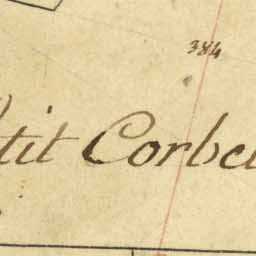 384
tit Corbei